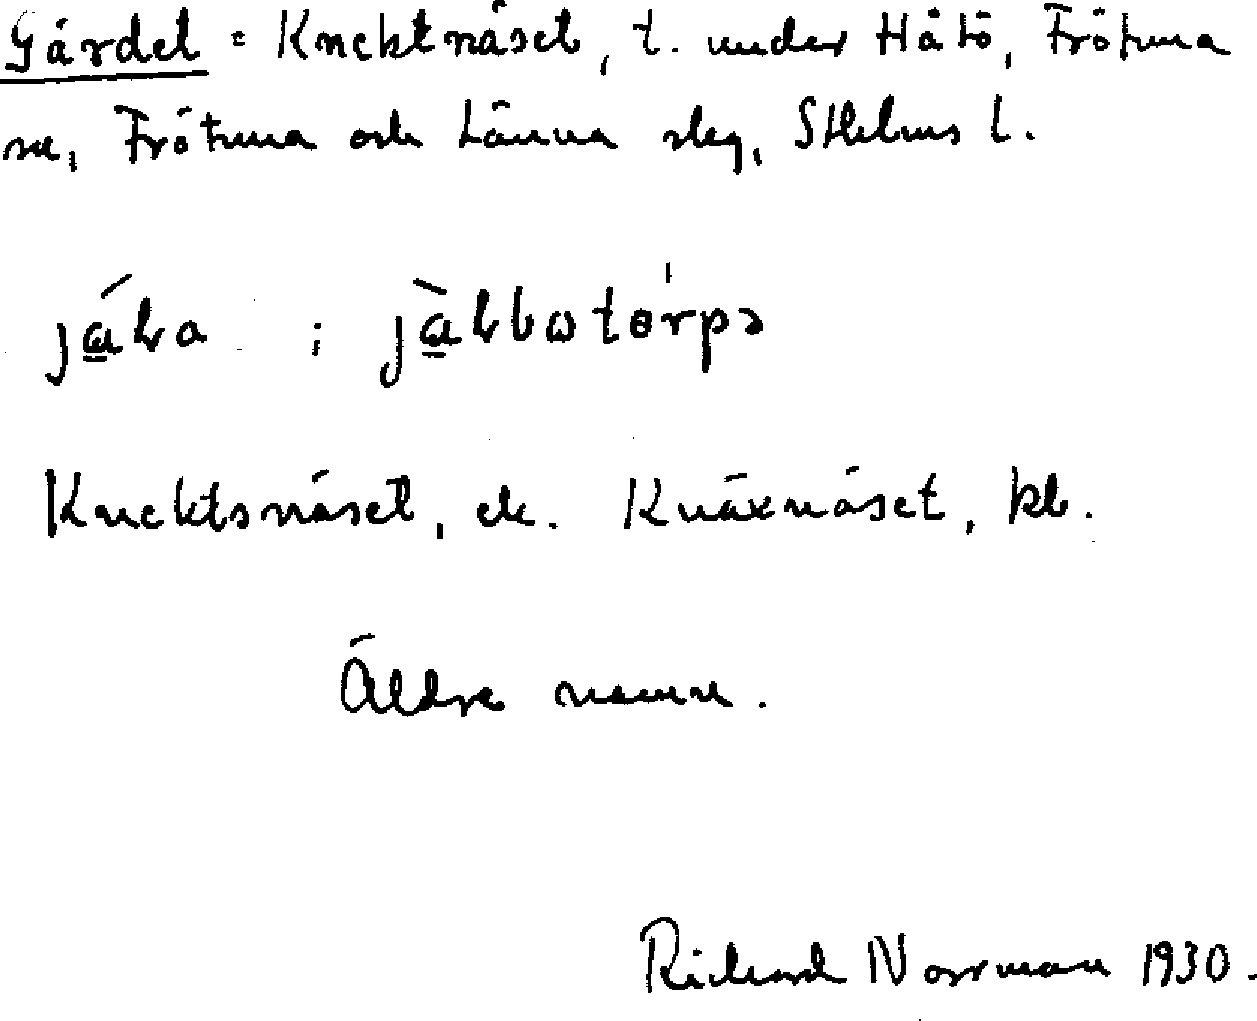 Gärdet = Knektnäset, t. under Håtö, Frötuna
sn, Frötuna och Länna skg, Sthlms l.
Knektsnäset, ek. Knäxnäset, kb.
Äldre namn.
Richard Norrman 1930.